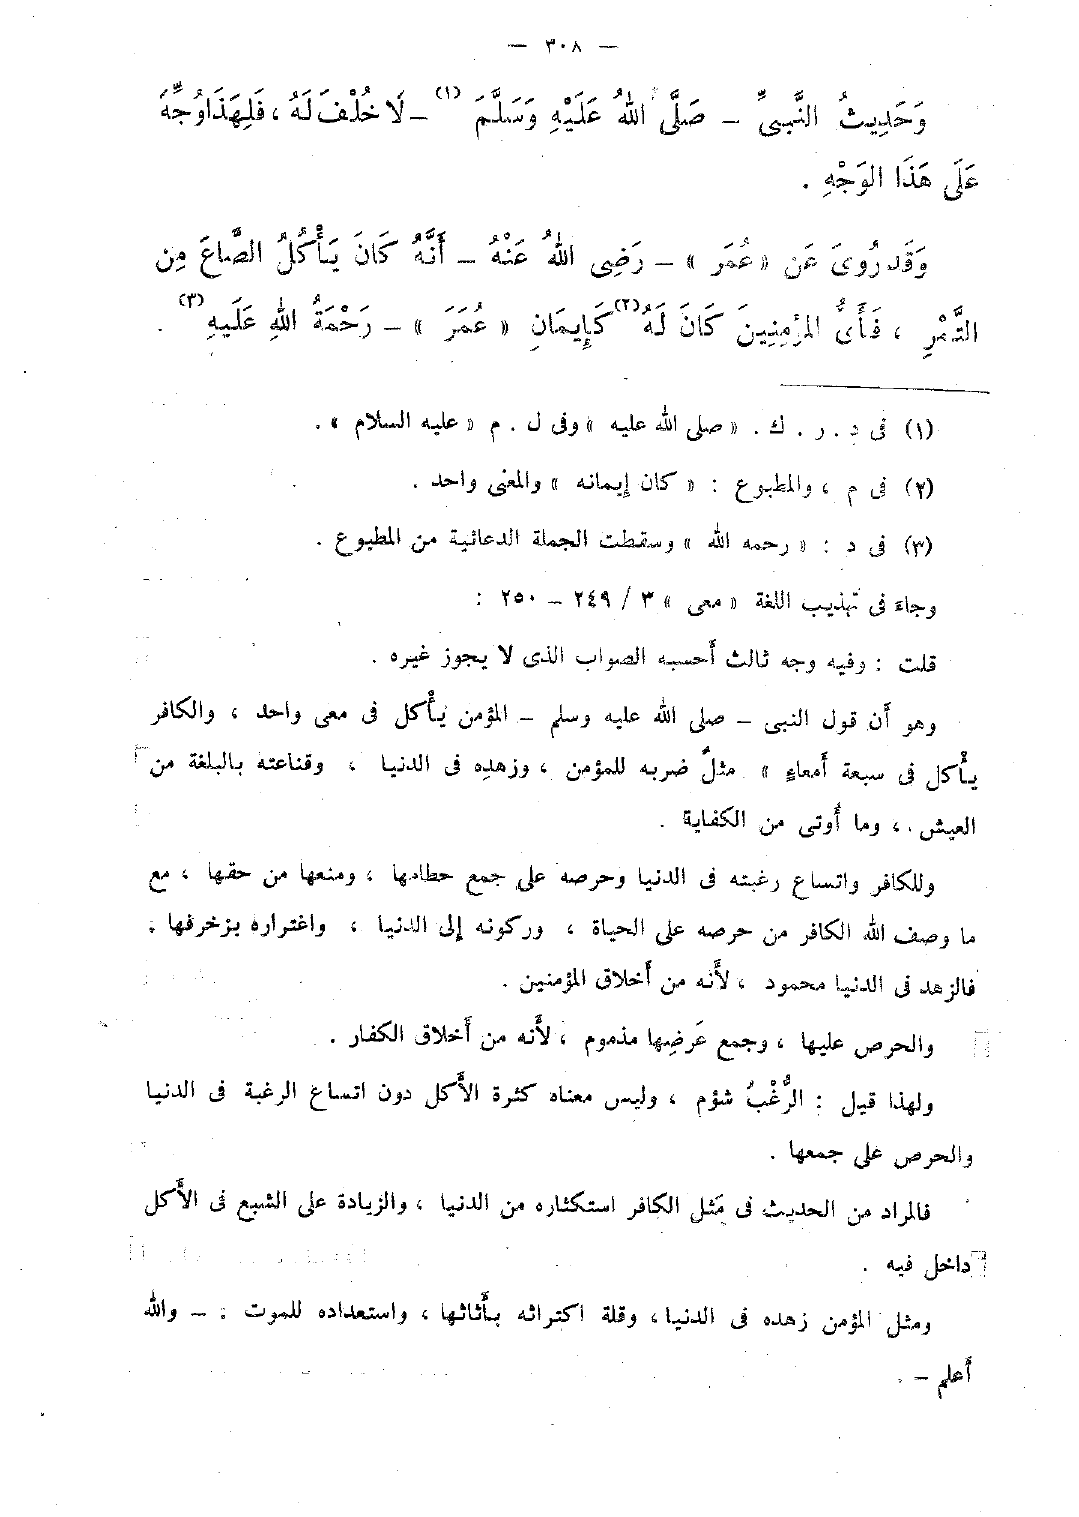 — ٣٠٨ —
وَحَدِيثُ النَّبِيِّ – صَلَّى اللهُ عَلَيْهِ وَسَلَّمَ (١) – لَا خُلْفَ لَهُ ، فَلِهَذَا وُجِّهَ
عَلَى هَذَا الوَجْهِ .
وَقَد رُوِىَ عَن « عُمَر » – رَضِى اللهُ عَنْهُ – أَنَّهُ كَانَ يَأْكُلُ الصَّاعَ مِن
التَّمْرِ ، فَأَىُّ المؤمِنِينَ كَانَ لَهُ (٢) كَإِيمَانِ « عُمَرَ » – رَحْمَةُ اللهِ عَلَيهِ (٣) .
(١) فى د . ر . ك . « صلى الله عليه » وفى ل . م « عليه السلام » .
(٢) فى م ، والمطبوع : « كان إيمانه » والمعنى واحد .
(٣) فى د : « رحمه الله » وسقطت الجملة الدعائية من المطبوع .
وجاء فى تهذيب اللغة « معى » ٣ / ٢٤٩ – ٢٥٠ :
قلت : وفيه وجه ثالث أحسبه الصواب الذى لا يجوز غيره .
وهو أن قول النبى – صلى الله عليه وسلم – المؤمن يأْكل فى معى واحد ، والكافر
يأْكل فى سبعة أمعاءٍ » مثلٌ ضربه للمؤمن ، وزهده فى الدنيا ، وقناعته بالبلغة من
العيش ، وما أُوتى من الكفاية .
وللكافر واتساع رغبته فى الدنيا وحرصه على جمع حطامها ، ومنعها من حقها ، مع
ما وصف الله الكافر من حرصه على الحياة ، وركونه إلى الدنيا ، واغتراره بزخرفها ؛
فالزهد فى الدنيا محمود ، لأَنه من أَخلاق المؤمنين .
والحرص عليها ، وجمع عَرضِها مذموم ، لأَنه من أَخلاق الكفار .
ولهذا قيل : الرُّغْبُ شؤم ، وليس معناه كثرة الأَكل دون اتساع الرغبة فى الدنيا
والحرص على جمعها .
فالمراد من الحديث فى مَثل الكافر استكثاره من الدنيا ، والزيادة على الشبع فى الأَكل
داخل فيه .
ومثل المؤمن زهده فى الدنيا ، وقلة اكتراثه بأَثاثها ، واستعداده للموت ؛ – والله
أعلم – .